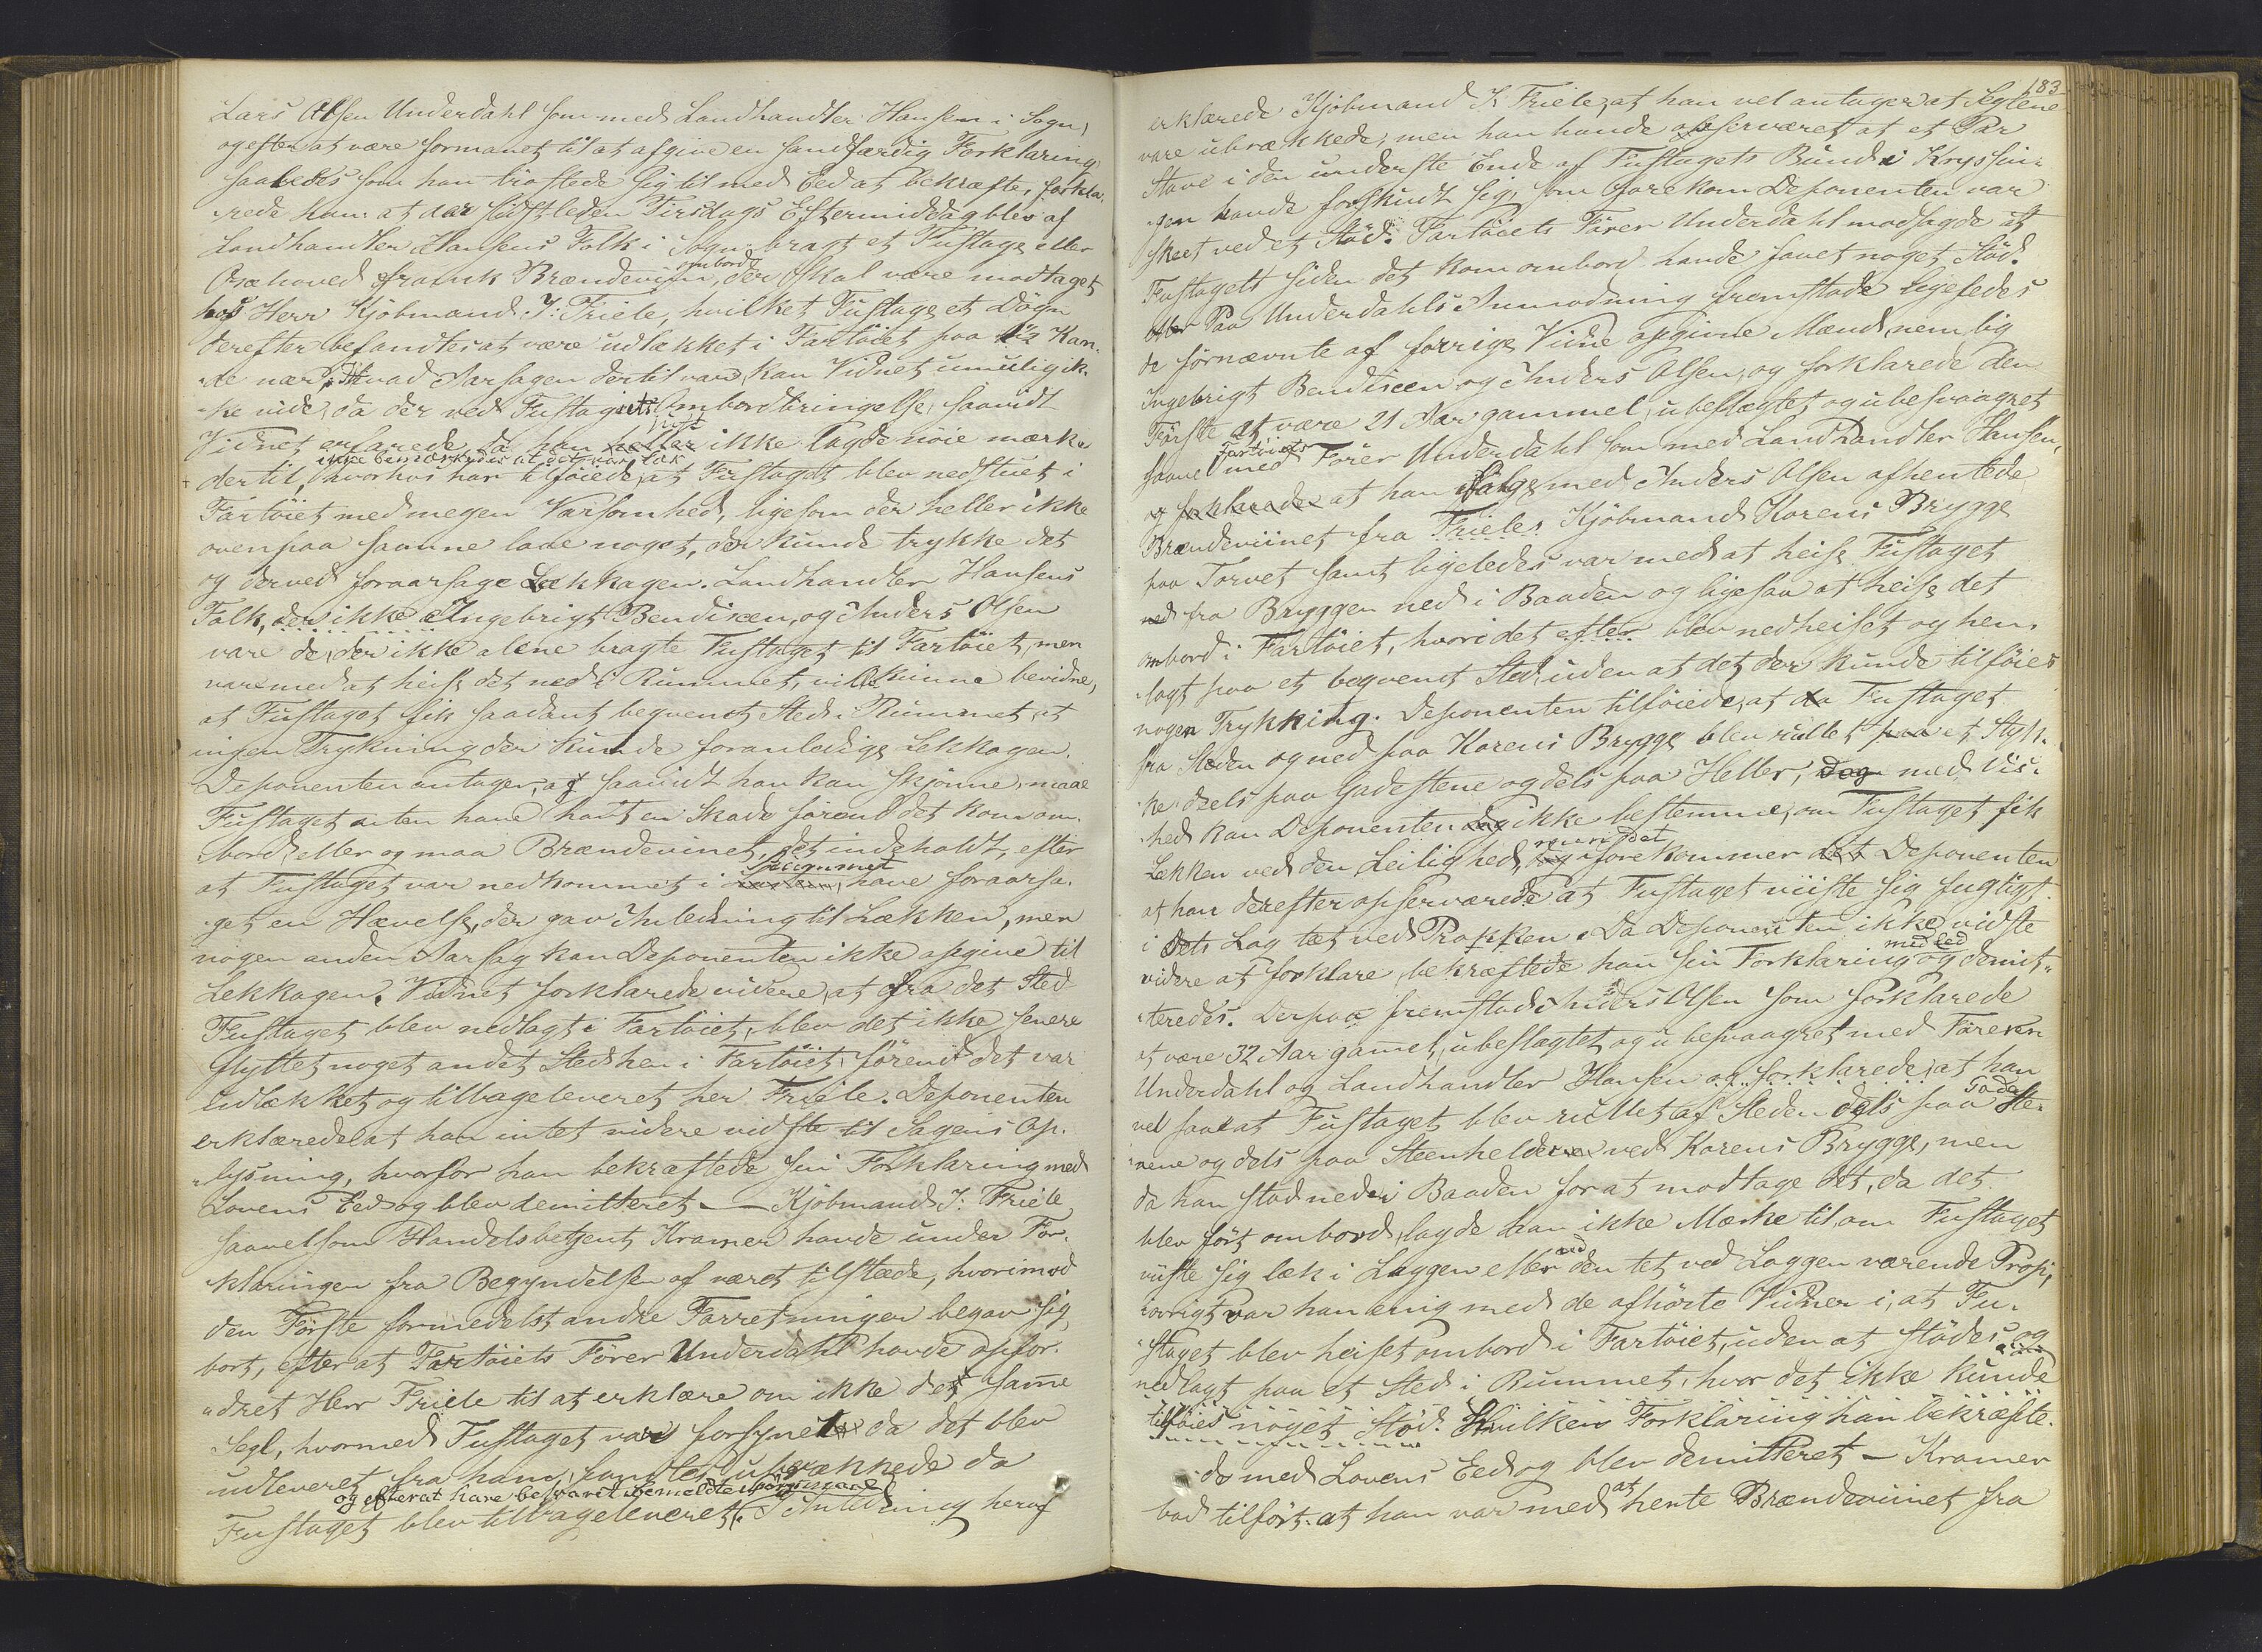 Lars Olsen Underdahl som med Landhandler Hansen i Sogn,
og efter at være formanet til at afgive en sandfærdig Forklaring
saaledes som han trøstede sig til med Eed at bekræfte, forkla-
rede han: at der sidstleden Tirsdags Eftermiddag blev af
Landhandler Hansens Folk i Sogn bragt et Fustage eller
ombord
Oxehoved fransk Brændeviin, der skal være modtaget
hos Herr Kjöbmand J: Friele, hvilket Fustage et Dögn
derefter befandtes at være udlækket i Fartöiet paa 1/2 Kan-
de nær; Hvad Aarsagen dertil var, kan Vidnet umulig ik-
ke vide, da der ved Fustagets Ombordbringelse, saavidt
just
Vidnet erfarede, da han heller ikke lagde nöie mærke
ikke bemærkedes at det var læk
dertil, hvorhos han tilföiede, at Fustaget blev nedstuet i
Fartöiet med megen Varsomhed, ligesom der heller ikke
ovenpaa samme lade noget, der kunde trykke det
og derved foraarsage Lækkagen. Landhandler Hansens
Folk, der ikke Ingebrigt Bendixen, og Anders Olsen
vare de, der ikke alene bragte Fustaget til Fartöiet, men
vare med at heise det ned i Rummet, vil kunne bevidne,
at Fustaget fik saadant beqvemt Sted i Rummet, at
ingen Trykning der kunde foranledige Lekkagen.
Deponenten antager, at saavidt han kan skjönne, maae
Fustaget enten have havt en Skade förend det kom om-
bord, eller og maa Brændevinet, det indeholdt, efter
at Fustaget var nedkommet i have foraarsa-
get en Hævelse, der gav Anledning til Lækken, men
nogen anden Aarsag kan Deponenten ikke opgive til
Lekkagen. Vidnet forklarede videre, at fra det Sted
Fustaget blev nedlagt i Fartöiet, blev det ikke senere
flyttet noget andet Sted hen i Fartöiet, förend det var
udlækket og tilbageleveret her Friele. Deponenten
erklærede at han intet videre vidste til Sagens Op-
lysning, hvorfor han bekræftede sin Forklaring med
Lovens Eed og blev demitteret — Kjöbmand J: Friele
saavelsom Handelsbetjent Kramer havde under For-
klaringen fra Begyndelsen af været tilstede, hvorimod
den Förste formedelst andre Forretninger begav sig
bort, efter at Fartöiets Förer Underdahl havde opfor-
dret Herr Friele til at erklære om ikke det samme
Segl, hvormed Fustaget var forsynet da det blev
udleveret fra ham, fandtes ubrækkede da
og efterat have besvaret bemeldte Spörgsmaal
Fustaget blev tilbageleveret. I Anledning heraf
183
erklærede Kjöbmand J: Friele, at han vel antager at Seglene
vare ubrækkede, men han havde observeret at et Par
Stave i den underste Ende af Fustagets Bund i Krydsin-
gen havde forskudt sig, som forekom Deponenten var
skeet ved et Stöd. Fartöiets Förer Underdahl modsagde at
Fustaget siden det kom ombord havde faaet noget Stöd.
Paa Underdahls Anmodning fremstode ligeledes
de förnævnte af forrige Vidne opgivne Mænd, nemlig
Ingebrigt Bendixen og Anders Olsen, og forklarede den
Förste at være 21 Aar gammel, ubeslægtet og ubesvaagret
Fartöiets
saavel med Förer Underdahl som med Landhandler Hansen,
og forklarede at han ifölge med Anders Olsen afhentede
Brændeviinet fra Frieles Kjöbmand Korens Brygge
paa Torvet samt ligeledes var med at heise Fustaget
ned fra Bryggen ned i Baaden og ligesaa at heise det
ombord i Fartöiet, hvori det efter blev nedheiset og hen-
lagt paa et beqvemt Sted, uden at det der kunde tilföies
nogen Trykking. Deponenten tilföiede, at da Fustaget
fra Steden og ned paa Korens Brygge blev rullet paa et Styk-
ke, deels paa Gadestene og dels paa Heller, dog med Vis-
hed kan Deponenten dog ikke bestemme, om Fustaget fik
men det
Lekken ved den Leilighed, forekommer det Deponenten
at han derefter observerede at Fustaget viiste sig fugtigt
i dets Lag tæt ved Proppen. Da Deponenten ikke vidste
med Eed
videre at forklare, bekræftede han sin Forklaring og demit-
teredes. Derpaa fremstod Anders Olsen som forklarede
at være 32 Aar gamel, ubeslægtet og ubesvaagret med Föreren
Underdahl og Landhandler Hansen og forklarede, at han
Gade
vel saae at Fustaget blev rullet af Steden dels paa Ste-
nene og dels paa Steenhelderne ved Korens Brygge, men
da han stod nede i Baaden for at modtage det, da det
blev fört ombord, lagde han ikke Mærke til, om Fustaget
ved
viiste sig læk i Laggen eller den tet ved Laggen værende Prop,
iövrigt var han enig med de afhörte Vidner i, at Fu-
staget blev heiset ombord i Fartöiet, uden at stödes og
nedlagt paa et Sted i Rummet, hvor det ikke kunde
tilföies noget Stöd. Hvilken Forklaring han bekræfte-
de med Lovens Eed og blev demitteret — Kramer
at
bad tilfört at han var med hente Brændeviinet fra